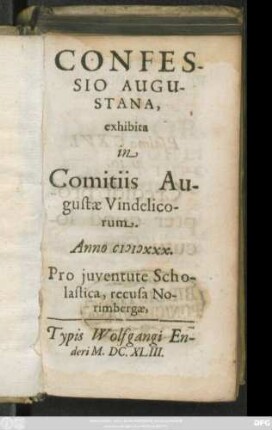 CONFES-
SIO AUGU-
STANA,
exhibita
in
Comitiis Au-
gustæ Vindelico-
rum.
Anno cIↄIↄxxx.
Pro juventute Scho-
lastica, recusa No-
rimbergæ,
Typis Wolfgangi En-
deri M. DC. XLIII.